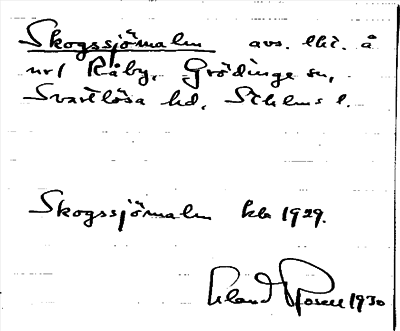 Skogssjömalm avs. lht. å
nr1 Råby, Grödinge sn,
Svartlösa hd, Sthlms l.
Skogssjömalm kb 1929.
Erland Rosell 1930